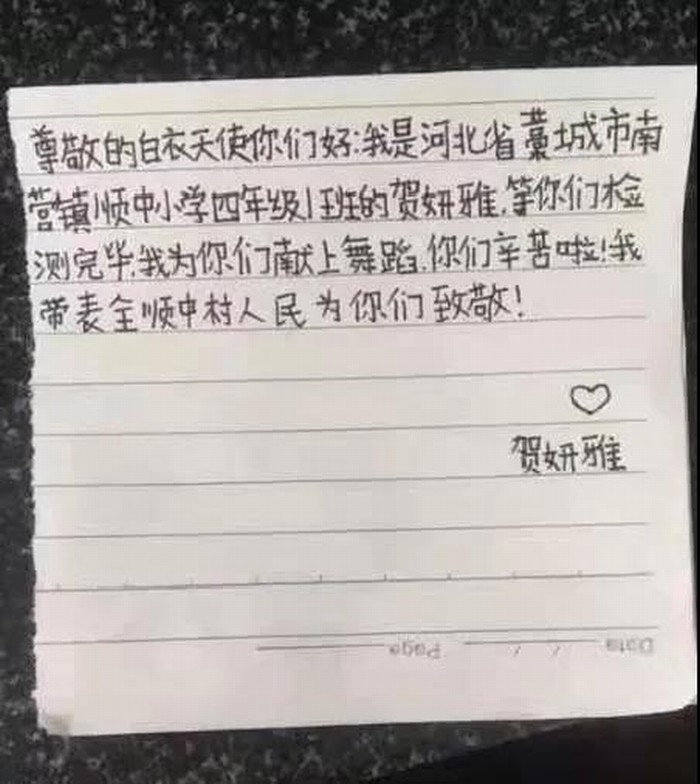 尊敬的白衣天使你们好:我是河北省藁城市南
营镇顺中小学四年级1班的贺妍雅.等你们检
测完毕.我为你们献上舞蹈.你们辛苦啦!我
带表全顺中村人民为你们致敬!
贺妍雅
Data / / Paga